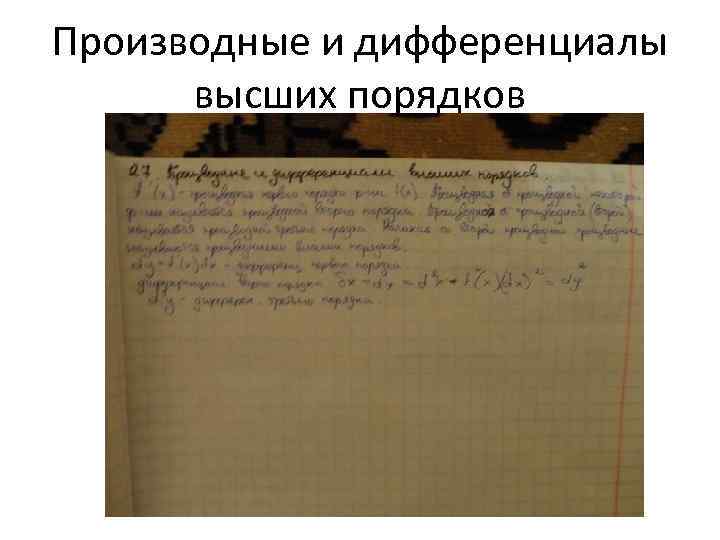 Производные и дифференциалы
высших порядков
27. Производные и дифференциалы высших порядков.
f'(x) - производная первого порядка ф-ии f(x). Производная от производной
ф-ии называется производной второго порядка. Производная от производной (второй)
называется производной третьего порядка. от второй производной производные
называются производными высших порядков.
dy = f'(x)dx - дифференц. первого порядка.
Дифференциал второго порядка
- дифферен. третьего порядка.